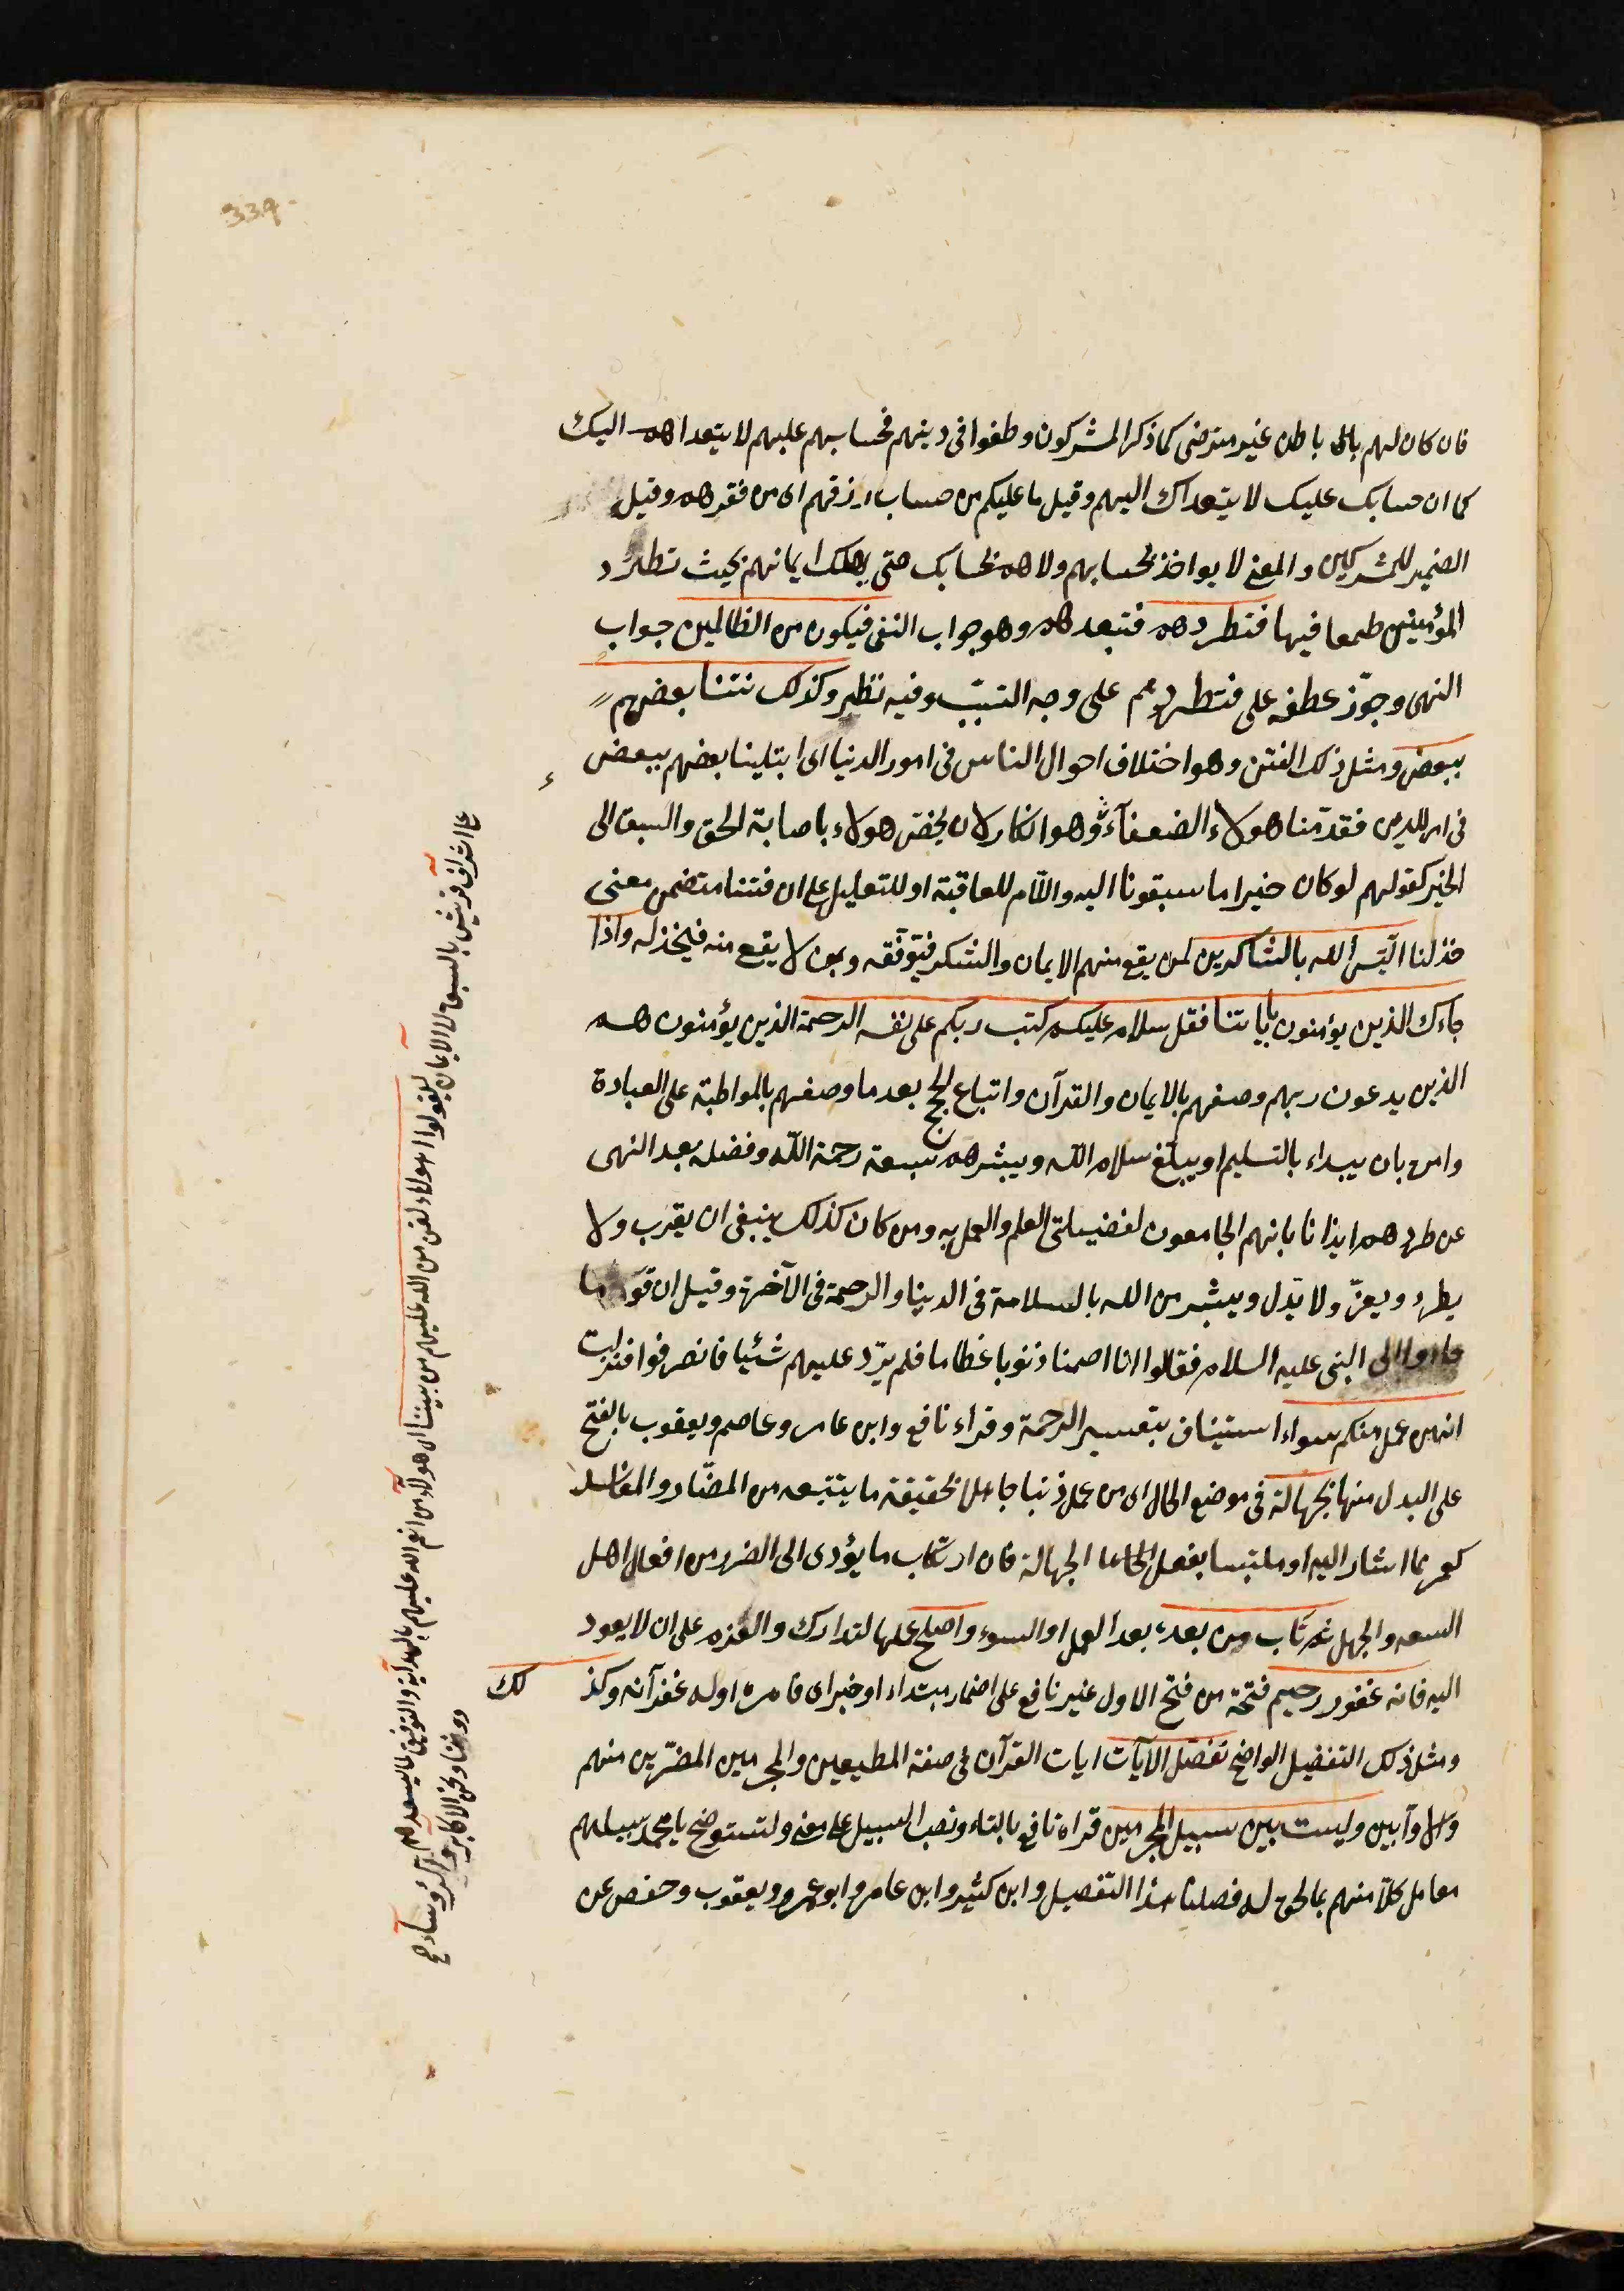 339
فان كان لهم باطن غير مرضى كما ذكر المشركون وطغوا فى دينهم فحسابهم عليهم لا يتعداهم اليك
كما ان حسابك عليك لا يتعداك اليهم وقيل ما عليكم من حساب رزقهم اى من فقرهم وقيل
الضمير للمشركين والمعنى لا يواخذ بحسابهم ولا هم بحسابك حتى يهمك ايمانهم بحيث تطرد
المؤمنين طمعا فيها فتطردهم فتبعدهم وهو جواب النفى فيكون من الظالمين جواب
النهى وجوّز عطفه على فتطردهم على وجه التسبّب وفيه نظر وكذلك فتنا بعضهم
ببعض ومثل ذلك الفتن وهو اختلاف احوال الناس فى امور الدنيا اى ابتلينا بعضهم ببعض
فى امر الدين فقدّمنا هولاء الضعفآء وهو انكار لان يخصّ هولاء باصابة الحق والسبق الى
الخير كقولهم لو كان خيرا ما سبقونا اليه واللام للعاقبة او للتعليل على ان فتنا متضمن معنى
خذلنا اليس الله بالشاكرين لمن يقع منهم الايمان والشكر فيوفّقه وبمن لا يقع منه فيخذله واذا
جاءك الذين يؤمنون باياتنا فقل سلام عليكم كتب ربكم على نفسه الرحمة الذين يؤمنون هم
الذين يدعون ربهم وصفهم بالايمان والقرآن واتباع الحجج بعد ما وصفهم بالمواظبة على العبادة
وامره بان يبداء بالتسليم او يبلّغ سلام الله ويبشرهم بسعة رحمة الله وفضله بعد النهى
عن طردهم ايذانا بانهم الجامعون لفضيلتى العلم والعمل به ومن كان كذلك ينبغى ان يقرب ولا
يطرد ويعزّ ولا يذل ويبشر من الله بالسلامة فى الدنيا والرحمة فى الآخرة وقيل ان قوما
جاءوا الى النبى عليه السلام فقالوا انا اصبنا ذنوبا عظاما فلم يردّ عليهم شئيا فانصرفوا فنزلت
انه من عمل منكم سواء استيناف بتفسير الرحمة وقراء نافع وابن عامر وعاصم ويعقوب بالفتح
على البدل منها بجهالة فى موضع الحال اى من عمل ذنبا جاهلا بحقيقة ما يتبعه من المضّار والمفاسد
كعمر بما اشار اليه او ملتبسا بفعل الجهالة فان ارتكاب ما يؤدى الى الضرر من افعال اهل
السفه والجهل ثم تاب من بعده بعد العمل او السوء واصلح عملها لتدارك والعزم على ان لا يعود
اليه فانه غفور رحيم فتحه من فتح الاول غير نافع على اضمار مبتداء او خبر اى فامره اوله غفرآنه وكذ
لك
ومثل ذلك التفضيل الواضح نفصل الآيات ايات القرآن فى صفة المطيعين والمجرمين المصرّين منهم
والاوآبين وليستبين سبيل المجرمين قراه نافع بالتاء ونصب السبيل على معنى ولتستوضح يا محمد سبيلهم
معامل كلا منهم بما يحق له فصلنا هذا التفصيل وابن كثير وابن عامر وابو عمرو ويعقوب وحفص عن
على اشراف قريش بالسبق الى الايمان ليقولوا اهولاء لمن من الله عليهم من بيننا
اى هولاء من انعم الله عليهم بالهداية والتوفيق لما يسعدهم
دوننا ونحن الاكابر والرؤساء وهم